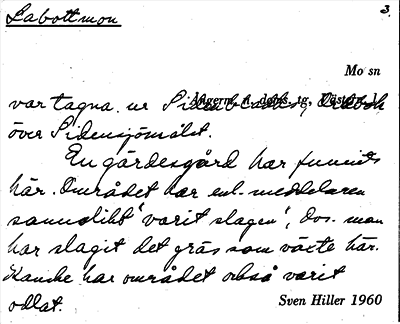 Labottmon
3.
Mo sn
var tagna ur Sidenbladhs, Ordbok
över Sidensjömålet.
En gärdesgård har funnits
här. Området har enl. meddelaren
sannolikt "varit slagen", dvs. man
har slagit det gräs som växte här.
Kanske har området också varit
odlat.
Sven Hiller 1960